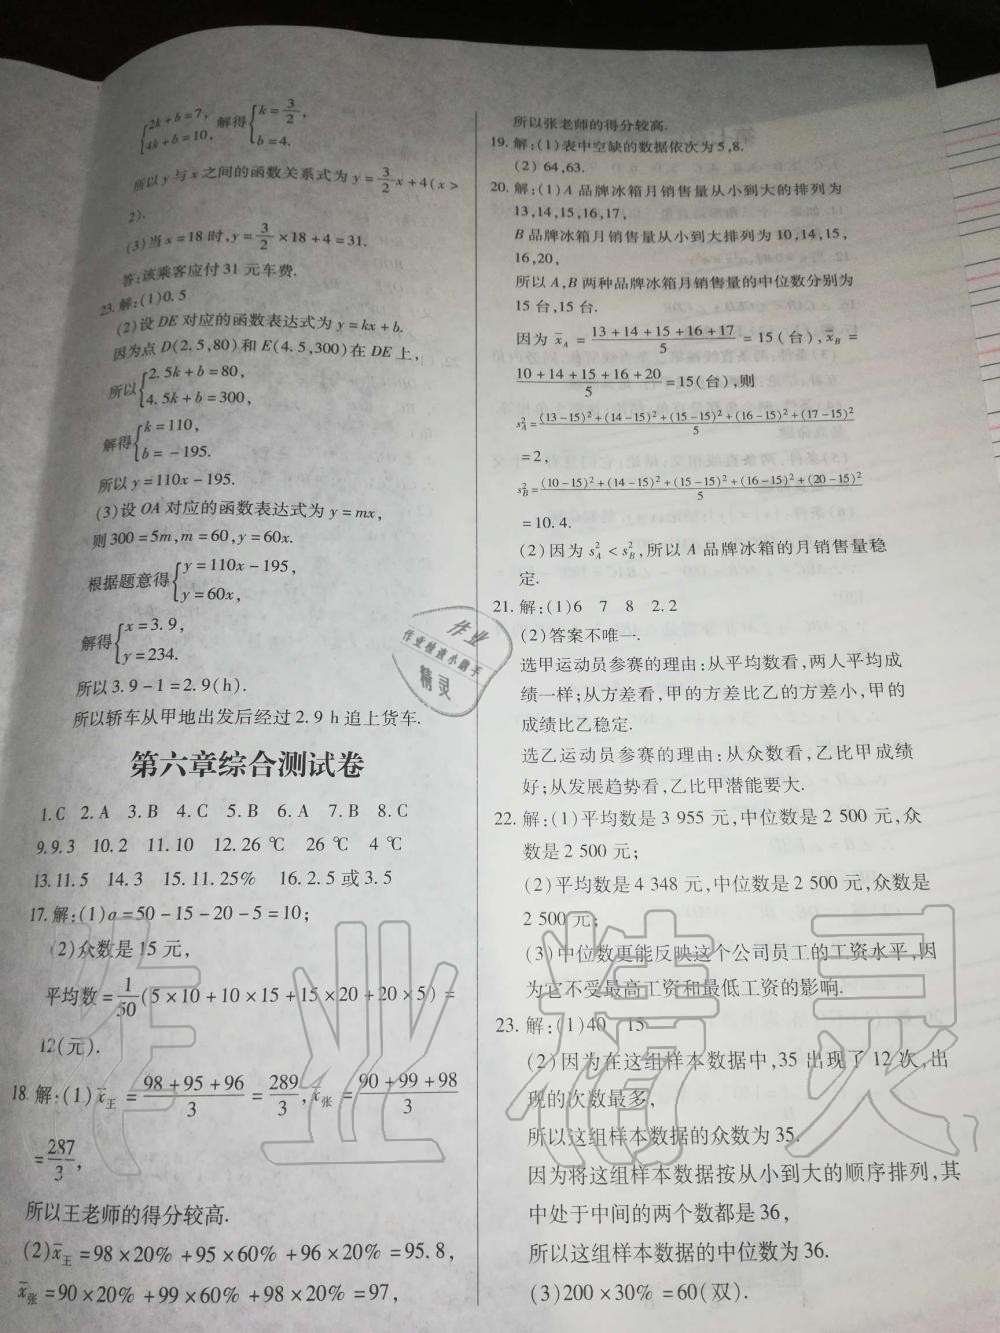 {2k+b=7,
4k+b=10, 解得{k=3/2,
b=4.
所以 y 与 x 之间的函数关系式为 y=3/2x+4(x>
2).
(3)当 x=18 时,y=3/2×18+4=31.
答:该乘客应付 31 元车费.
23.解:(1)0.5
(2)设 DE 对应的函数表达式为 y=kx+b.
因为点 D(2.5,80)和 E(4.5,300)在 DE 上,
所以{2.5k+b=80,
4.5k+b=300,
解得{k=110,
b=-195.
所以 y=110x-195.
(3)设 OA 对应的函数表达式为 y=mx,
则 300=5m,m=60,y=60x.
根据题意得{y=110x-195,
y=60x,
解得{x=3.9,
y=234.
所以 3.9-1=2.9(h).
所以轿车从甲地出发后经过 2.9 h 追上货车.
第六章综合测试卷
1.C 2.A 3.B 4.C 5.B 6.A 7.B 8.C
9.9.3 10.2 11.10 12.26 ℃ 26 ℃ 4 ℃
13.11.5 14.3 15.11.25% 16.2.5 或 3.5
17.解:(1)a=50-15-20-5=10;
(2)众数是 15 元,
平均数=1/50(5×10+10×15+15×20+20×5)=
12(元).
18.解:(1)x̄王=(98+95+96)/3=289/3,x̄张=(90+99+98)/3
=287/3,
所以王老师的得分较高.
(2)x̄王=98×20%+95×60%+96×20%=95.8,
x̄张=90×20%+99×60%+98×20%=97,
所以张老师的得分较高.
19.解:(1)表中空缺的数据依次为 5,8.
(2)64,63.
20.解:(1)A 品牌冰箱月销售量从小到大的排列为
13,14,15,16,17,
B 品牌冰箱月销售量从小到大排列为 10,14,15,
16,20,
所以 A,B 两种品牌冰箱月销售量的中位数分别为
15 台,15 台.
因为 x̄A=(13+14+15+16+17)/5=15(台),x̄B=
(10+14+15+16+20)/5=15(台),则
s²A=((13-15)²+(14-15)²+(15-15)²+(16-15)²+(17-15)²)/5
=2,
s²B=((10-15)²+(14-15)²+(15-15)²+(16-15)²+(20-15)²)/5
=10.4.
(2)因为 s²A<s²B,所以 A 品牌冰箱的月销售量稳
定.
21.解:(1)6 7 8 2.2
(2)答案不唯一.
选甲运动员参赛的理由:从平均数看,两人平均成
绩一样;从方差看,甲的方差比乙的方差小,甲的
成绩比乙稳定.
选乙运动员参赛的理由:从众数看,乙比甲成绩
好;从发展趋势看,乙比甲潜能要大.
22.解:(1)平均数是 3 955 元,中位数是 2 500 元,众
数是 2 500 元;
(2)平均数是 4 348 元,中位数是 2 500 元,众数是
2 500 元;
(3)中位数更能反映这个公司员工的工资水平,因
为它不受最高工资和最低工资的影响.
23.解:(1)40 15
(2)因为在这组样本数据中,35 出现了 12 次,出
现的次数最多,
所以这组样本数据的众数为 35.
因为将这组样本数据按从小到大的顺序排列,其
中处于中间的两个数都是 36,
所以这组样本数据的中位数为 36.
(3)200×30%=60(双).
作业
作业检查小助手
精灵
作业精灵